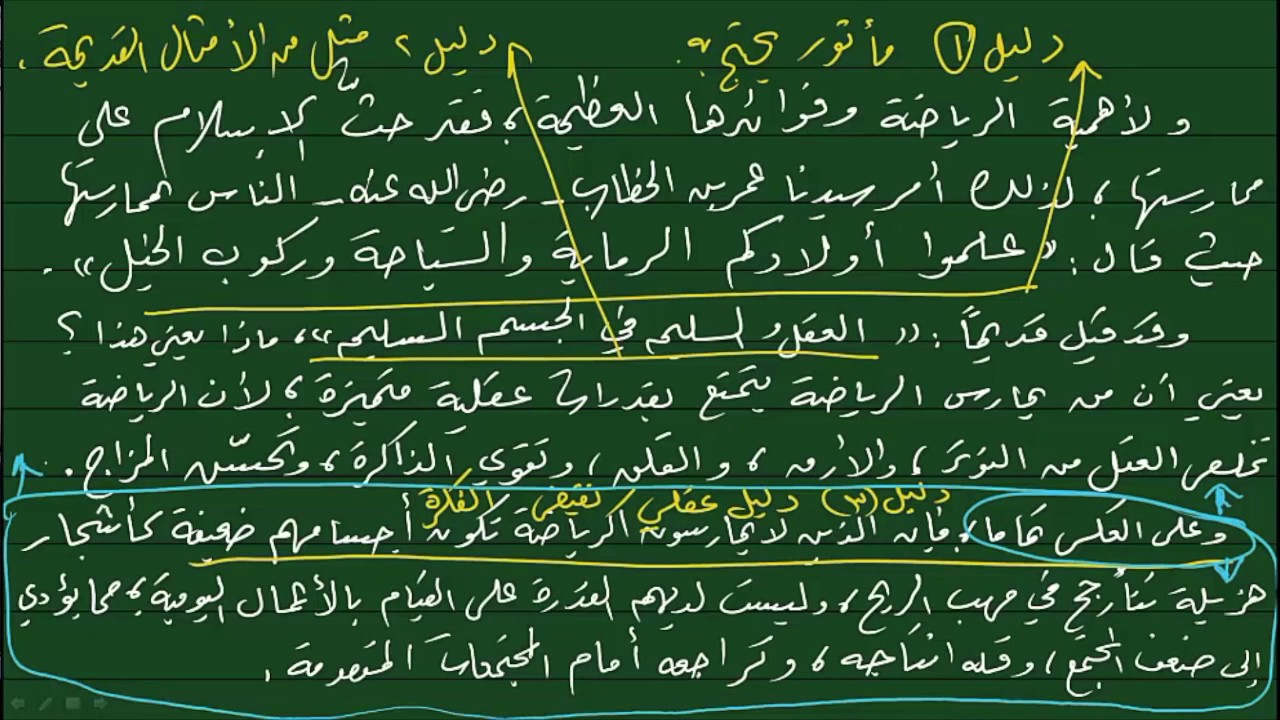 دليل ① مأثور يحتج به. دليل ٢ مثل من الأمثال القديمة.
ولأهمية الرياضة وفوائدها العظيمة، فقد حثّ الإسلام على
ممارستها، لذلك أمر سيدنا عمر بن الخطاب - رضي الله عنه - الناس بممارستها
حيث قال: «علموا أولادكم الرماية والسباحة وركوب الخيل».
وقد قيل قديماً: «العقل السليم في الجسم السليم»، ماذا يعني هذا؟
يعني أن من يمارس الرياضة يتمتع بقدرات عقلية متميزة، لأن الرياضة
تخلص العقل من التوتر، والأرق، والقلق، وتقوي الذاكرة، وتحسّن المزاج.
دليل (٣) دليل عقلي / نقيض الفكرة
وعلى العكس تماما، فإن الذين لا يمارسون الرياضة تكون أجسامهم ضعيفة كأشجار
هزيلة تتأرجح في مهب الريح، وليست لديهم القدرة على القيام بالأعمال اليومية، مما يؤدي
إلى ضعف المجتمع، وقلة انتاجه، وتراجعه أمام المجتمعات المتقدمة.